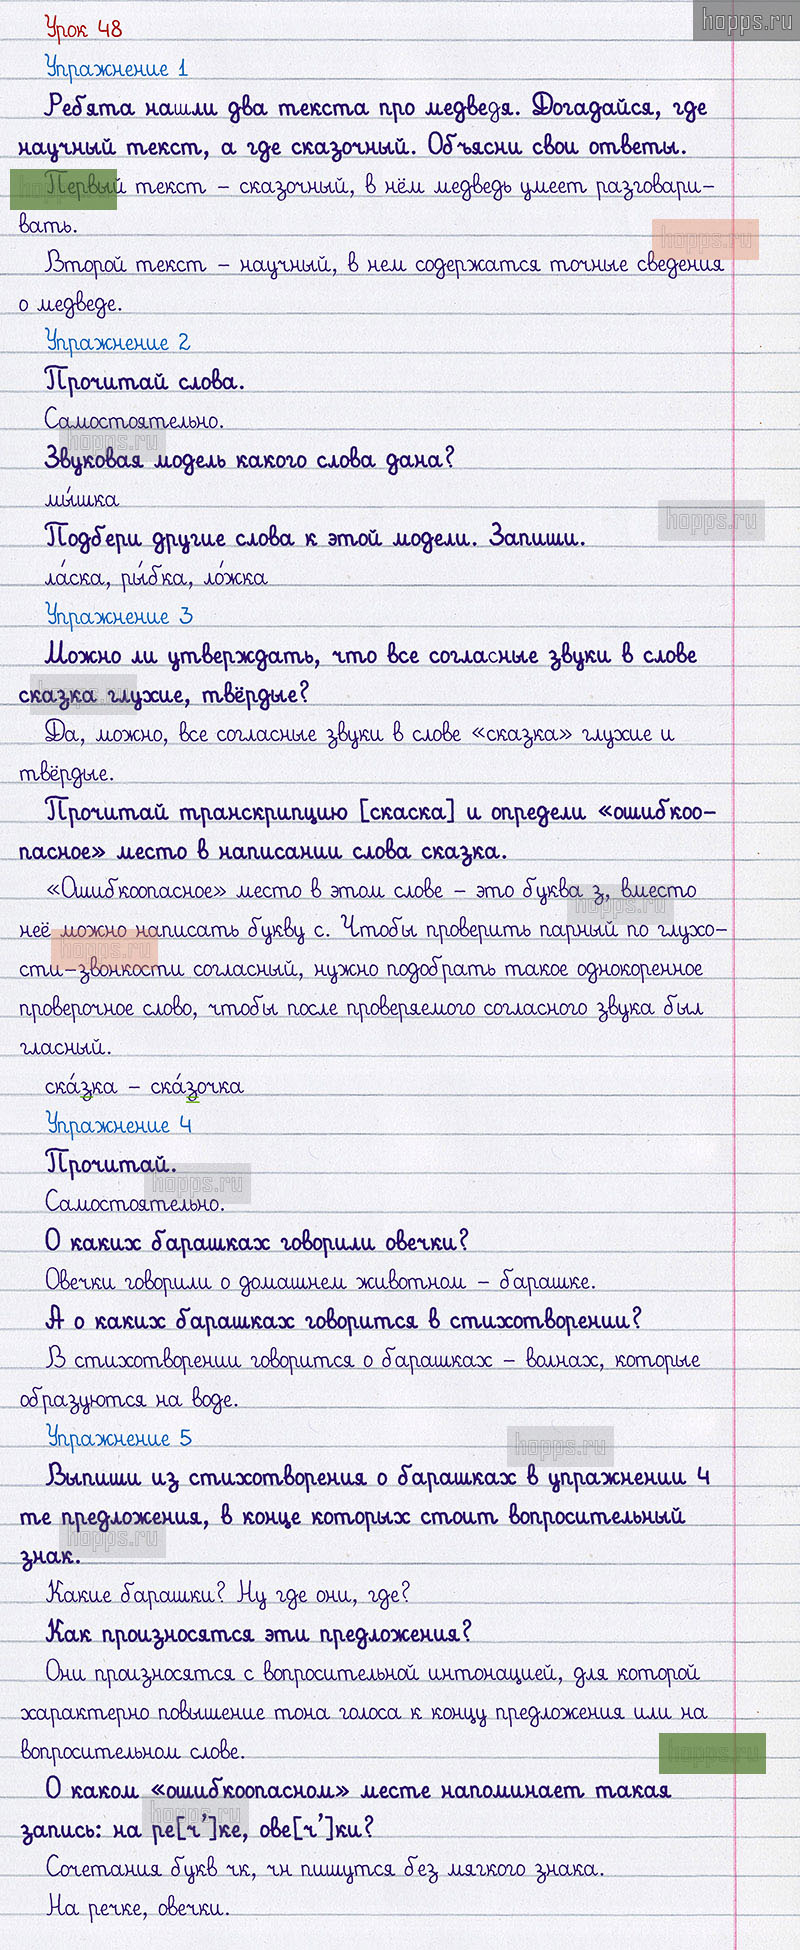 hopps.ru
Урок 48
Упражнение 1
Ребята нашли два текста про медведя. Догадайся, где
научный текст, а где сказочный. Объясни свои ответы.
hopps.ru
Первый текст – сказочный, в нём медведь умеет разговари-
вать.
hopps.ru
Второй текст – научный, в нем содержатся точные сведения
о медведе.
Упражнение 2
Прочитай слова.
Самостоятельно.
hopps.ru
Звуковая модель какого слова дана?
мы́шка
hopps.ru
Подбери другие слова к этой модели. Запиши.
ла́ска, ры́бка, ло́жка
Упражнение 3
Можно ли утверждать, что все согласные звуки в слове
сказка глухие, твёрдые?
hopps.ru
Да, можно, все согласные звуки в слове «сказка» глухие и
твёрдые.
Прочитай транскрипцию [скаска] и определи «ошибкоо-
пасное» место в написании слова сказка.
«Ошибкоопасное» место в этом слове – это буква з, вместо
hopps.ru
неё можно написать букву с. Чтобы проверить парный по глухо-
hopps.ru
сти-звонкости согласный, нужно подобрать такое однокоренное
проверочное слово, чтобы после проверяемого согласного звука был
гласный.
ска́зка – ска́зочка
Упражнение 4
Прочитай.
hopps.ru
Самостоятельно.
О каких барашках говорили овечки?
Овечки говорили о домашнем животном – барашке.
А о каких барашках говорится в стихотворении?
В стихотворении говорится о барашках – волнах, которые
образуются на воде.
Упражнение 5
hopps.ru
Выпиши из стихотворения о барашках в упражнении 4
те предложения, в конце которых стоит вопросительный
hopps.ru
знак.
Какие барашки? Ну где они, где?
Как произносятся эти предложения?
Они произносятся с вопросительной интонацией, для которой
характерно повышение тона голоса к концу предложения или на
вопросительном слове.
hopps.ru
О каком «ошибкоопасном» месте напоминает такая
hopps.ru
запись: на ре[ч’]ке, ове[ч’]ки?
Сочетания букв чк, чн пишутся без мягкого знака.
На речке, овечки.